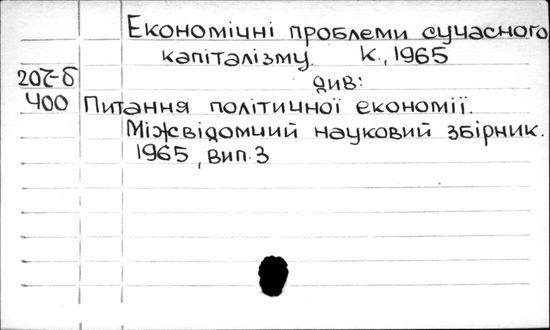 Економічні проблеми сучасного
капіталізму. К., 1965
207-б див:
400 Питання політичної економії.
Міжвідомчий науковий збірник.
1965, вип. 3